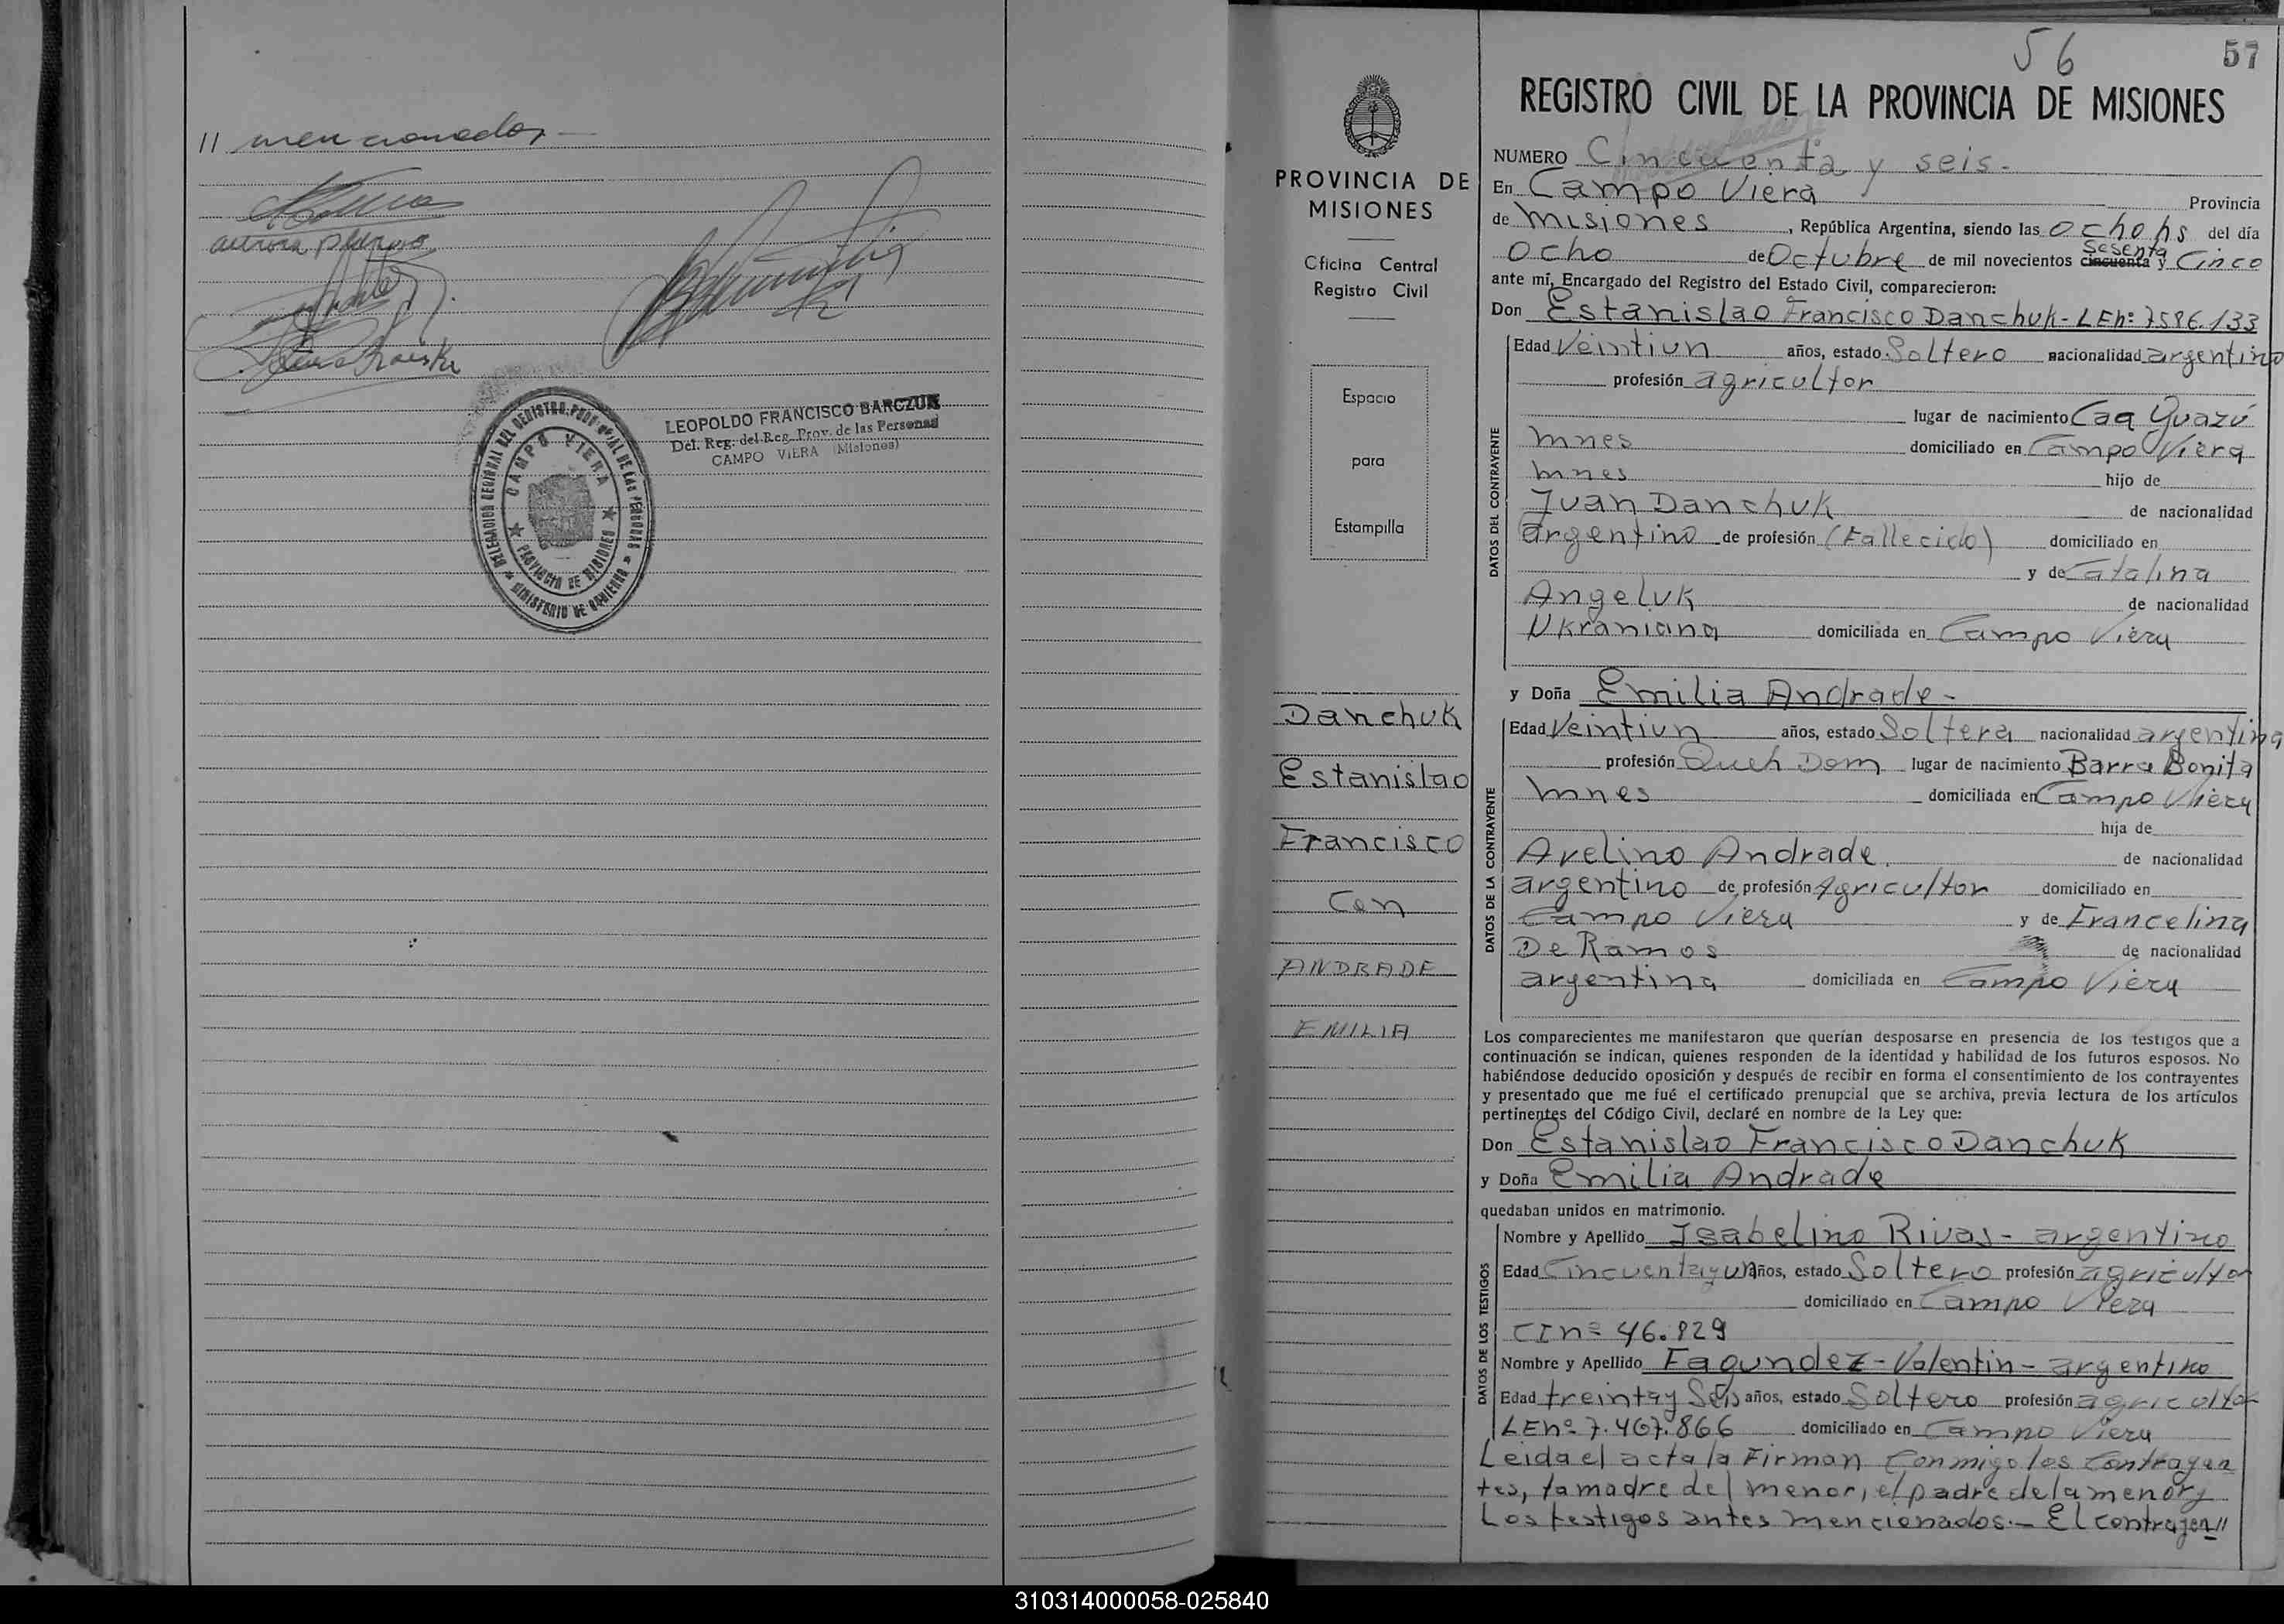 // mencionados
Aurora
LEOPOLDO FRANCISCO BARCZUK
Del. Reg. del Reg. Prov. de las Personas
CAMPO VIERA (Misiones)
DELEGACION SECCIONAL DEL REGISTRO PROVINCIAL DE LAS PERSONAS
CAMPO VIERA
PROVINCIA DE MISIONES
MINISTERIO DE GOBIERNO
56
57
PROVINCIA DE
MISIONES
Oficina Central
Registro Civil
Espacio
para
Estampilla
Danchuk
Estanislao
Francisco
Con
ANDRADE
EMILIA
REGISTRO CIVIL DE LA PROVINCIA DE MISIONES
NUMERO Cincuenta y seis.
En Campo Viera Provincia
de Misiones, República Argentina, siendo las ocho hs del día
Ocho de Octubre de mil novecientos cincuenta Sesenta y Cinco
ante mí, Encargado del Registro del Estado Civil, comparecieron:
Don Estanislao Francisco Danchuk - LEnº 7586.133
DATOS DEL CONTRAYENTE
Edad Veintiun años, estado Soltero nacionalidad argentino
profesión agricultor
lugar de nacimiento Caa Guazú
Mnes domiciliado en Campo Viera
Mnes hijo de
Juan Danchuk de nacionalidad
argentino de profesión (Fallecido) domiciliado en
y de Catalina
Angeluk de nacionalidad
Ukraniana domiciliada en Campo Viera
y Doña Emilia Andrade -
DATOS DE LA CONTRAYENTE
Edad Veintiun años, estado Soltera nacionalidad argentina
profesión Queh Dom lugar de nacimiento Barra Bonita
Mnes domiciliada en Campo Viera
hija de
Avelino Andrade de nacionalidad
argentino de profesión Agricultor domiciliado en
Campo Viera y de Francelina
De Ramos de nacionalidad
argentina domiciliada en Campo Viera
Los comparecientes me manifestaron que querían desposarse en presencia de los testigos que a
continuación se indican, quienes responden de la identidad y habilidad de los futuros esposos. No
habiéndose deducido oposición y después de recibir en forma el consentimiento de los contrayentes
y presentado que me fué el certificado prenupcial que se archiva, previa lectura de los artículos
pertinentes del Código Civil, declaré en nombre de la Ley que:
Don Estanislao Francisco Danchuk
y Doña Emilia Andrade
quedaban unidos en matrimonio.
DATOS DE LOS TESTIGOS
Nombre y Apellido Isabelino Rivas - argentino
Edad Cincuenta y un años, estado Soltero profesión agricultor
domiciliado en Campo Viera
CInº 46.829
Nombre y Apellido Fagundez - Valentin - argentino
Edad treinta y Seis años, estado Soltero profesión agricultor
LEnº 7.467.866 domiciliado en Campo Viera
Leida el acta la Firman Conmigo los Contrayen
tes, la madre del menor, el padre de la menor y
Los testigos antes mencionados.- El contrayen//
310314000058-025840